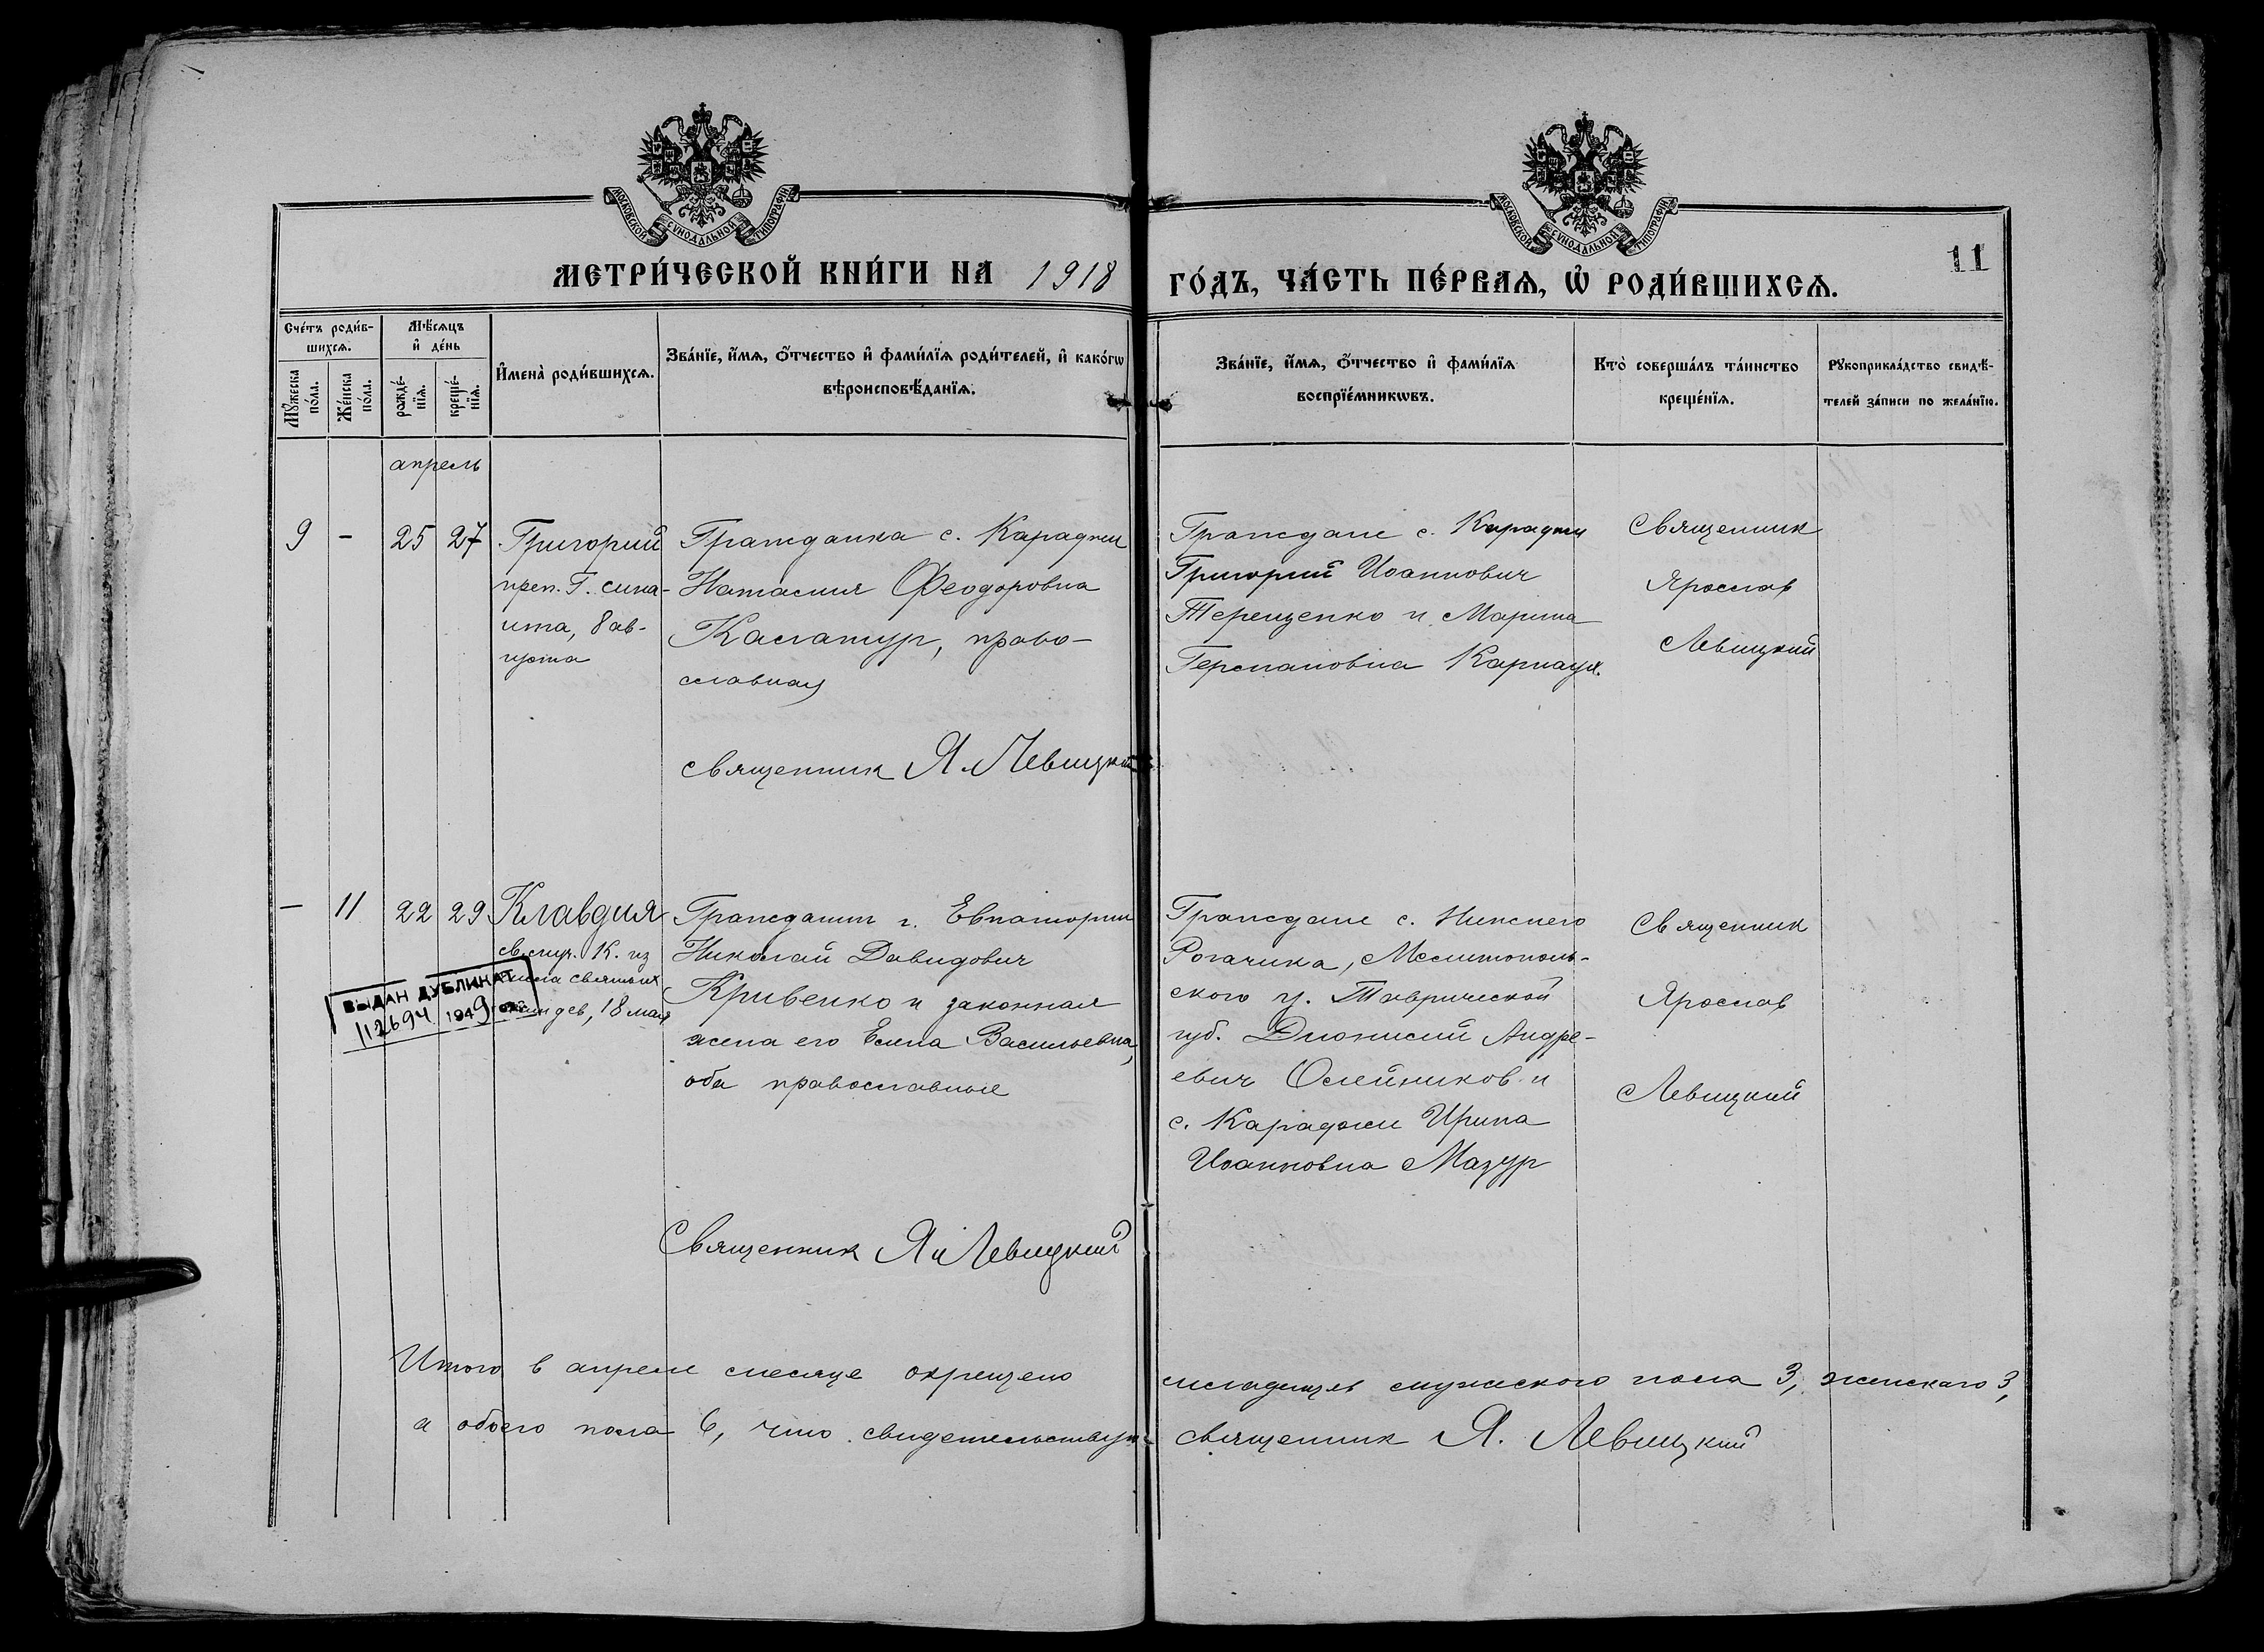 МОСКОВСКОЙ СУНОДАЛЬНОЙ ТИПОГРАФІИ
МОСКОВСКОЙ СУНОДАЛЬНОЙ ТИПОГРАФІИ
МЕТРИ́ЧЕСКОЙ КНИ́ГИ НА 1918
ГО́ДЪ, ЧА́СТЬ ПЕ́РВАѦ, Ѽ РОДИ́ВШИХСѦ.
11
Сче́тъ роди́в-
шихсѧ.
Мꙋ́жеска
по́ла.
Же́нска
по́ла.
Мѣ́сѧцъ
и҆ де́нь
рожде́-
нїѧ.
креще́-
нїѧ.
И҆мена̀ роди́вшихсѧ.
Зва́нїе, и҆́мѧ, ѻ҆́тчество и҆ фами́лїѧ роди́телей, и҆ како́гѡ
вѣроисповѣ́данїѧ.
Зва́нїе, и҆́мѧ, ѻ҆́тчество и҆ фами́лїѧ
воспрїе́мникѡвъ.
Кто̀ соверша́лъ та́инство
креще́нїѧ.
Рꙋкоприкла́дство свидѣ́-
телей за́писи по жела́нїю.
апрель
9 - 25 27
Григорий
преп. Г. сина-
ита, 8 ав-
густа
Гражданка с. Караджи
Феодоровна
право-
славная
священник Я. Левицкий
Граждане с. Караджи
Григорий Иоаннович
Терещенко и Марина
Карнаух.
Священник
Ярослав
Левицкий
- 11 22 29
Клавдия
св. муч. К. из
числа святых
дев, 18 мая
ВЫДАН ДУБЛИКАТ
112694 1949 года
Гражданин г. Евпатории
Николай Давидович
Кривенко и законная
жена его Елена Васильевна,
оба православные
Священник Я. Левицкий
Граждане с. Нижнего
Рогачика, Мелитополь-
ского у. Таврической
губ. Дионисий Андре-
евич Олейников и
с. Караджи Ирина
Иоанновна Мазур
Священник
Ярослав
Левицкий
Итого в апреле месяце окрещено
младенцев мужеского пола 3, женскаго 3,
а обоего пола 6, что свидетельствую
священник Я. Левицкий